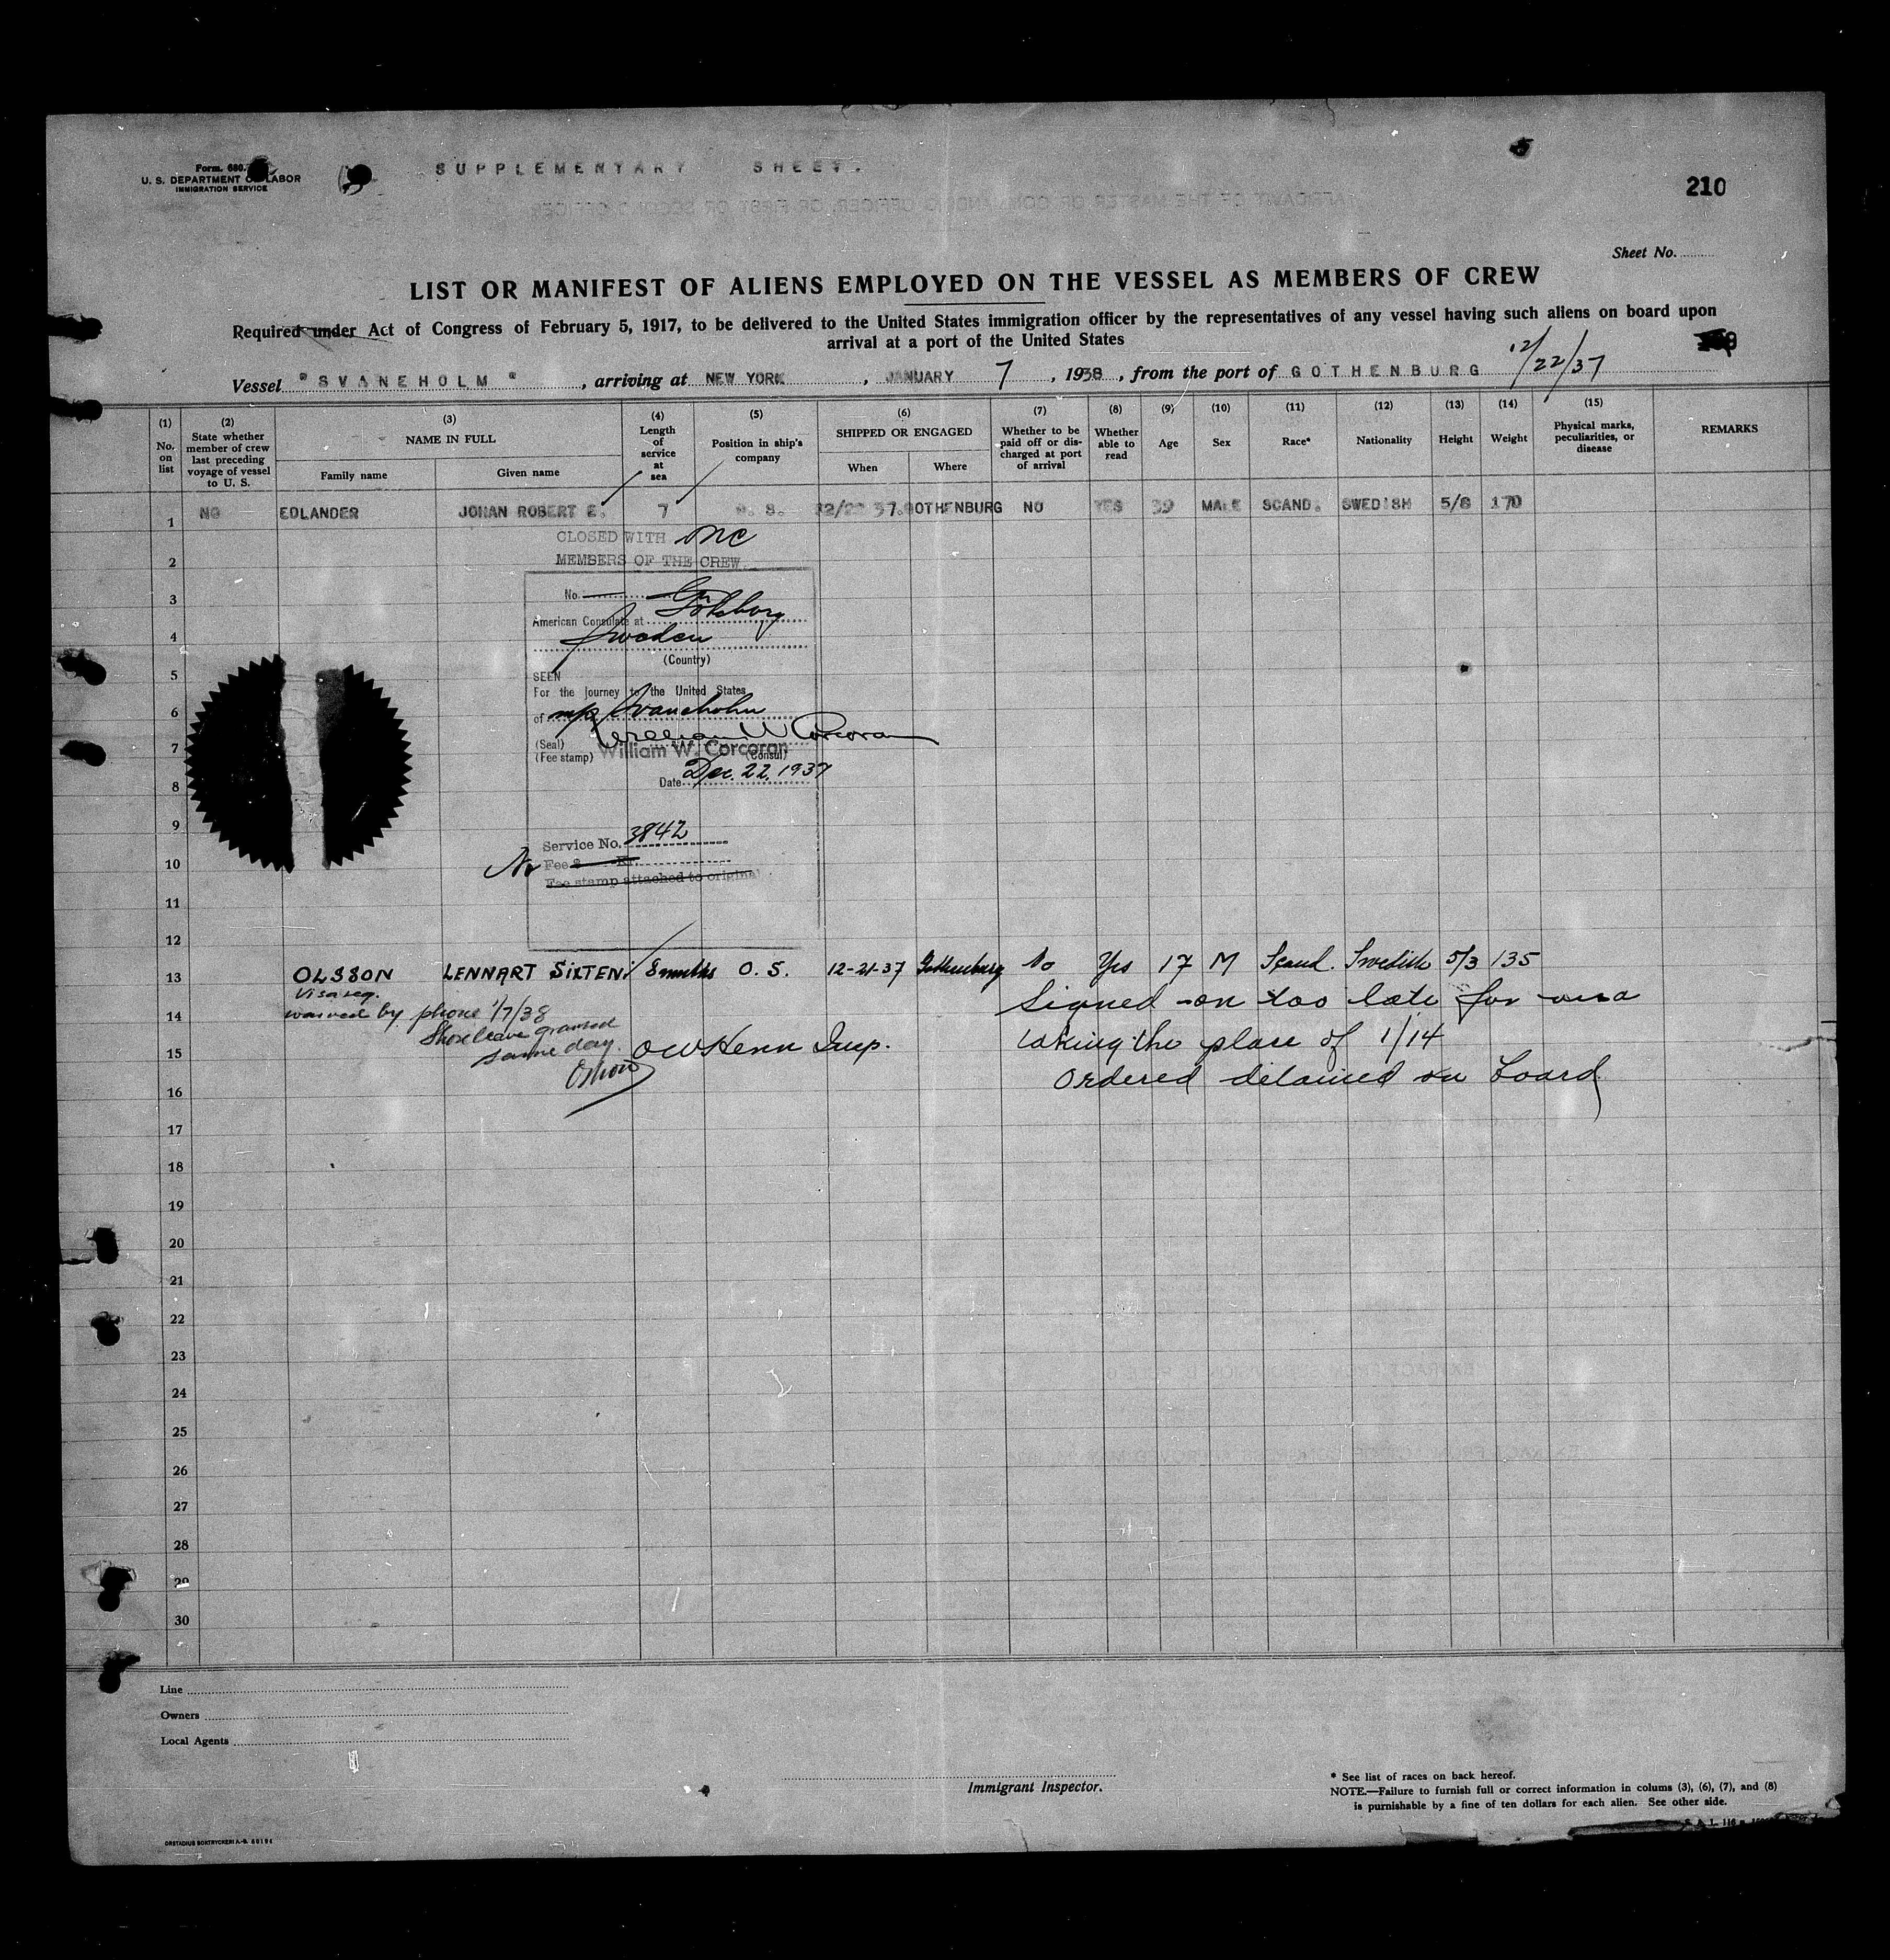 Form 680.
U. S. DEPARTMENT OF LABOR
IMMIGRATION SERVICE
SUPPLEMENTARY SHEET.
210
Sheet No.
LIST OR MANIFEST OF ALIENS EMPLOYED ON THE VESSEL AS MEMBERS OF CREW
Required under Act of Congress of February 5, 1917, to be delivered to the United States immigration officer by the representatives of any vessel having such aliens on board upon
arrival at a port of the United States
Vessel "SVANEHOLM", arriving at NEW YORK, JANUARY 7, 1938, from the port of GOTHENBURG 12/22/37
(1) No. on list
(2) State whether member of crew last preceding voyage of vessel to U. S.
(3) NAME IN FULL
Family name
Given name
(4) Length of service at sea
(5) Position in ship's company
(6) SHIPPED OR ENGAGED
When
Where
(7) Whether to be paid off or discharged at port of arrival
(8) Whether able to read
(9) Age
(10) Sex
(11) Race*
(12) Nationality
(13) Height
(14) Weight
(15) Physical marks, peculiarities, or disease
REMARKS
1 NO EDLANDER JOHAN ROBERT E. 7 S. 12/22 37. GOTHENBURG NO YES 39 MALE SCAND. SWEDISH 5/8 170
CLOSED WITH
2 MEMBERS OF THE CREW
3 No.
American Consulate at Göteborg
4 Sweden
(Country)
5 SEEN
For the journey to the United States
6 of m/s Svaneholm
William W Corcoran
7 (Seal)
(Fee stamp) William W. Corcoran
(Consul)
Date Dec. 22, 1937
8
9
Service No. 3842
10 No Fee $ Kr.
Fee stamp attached to original
11
12
13 OLSSON LENNART SIXTEN 8 months O. S. 12-21-37 Gothenburg No Yes 17 M Scand. Swedish 5/3 135
Visa req.
waived by phone 1/7/38
Signed on too late for visa
14
Shore leave granted
same day.
15 Insp.
taking the place of 1/14
Ordered detained on board
16
17
18
19
20
21
22
23
24
25
26
27
28
29
30
Line
Owners
Local Agents
Immigrant Inspector.
* See list of races on back hereof.
NOTE.—Failure to furnish full or correct information in colums (3), (6), (7), and (8)
is punishable by a fine of ten dollars for each alien. See other side.